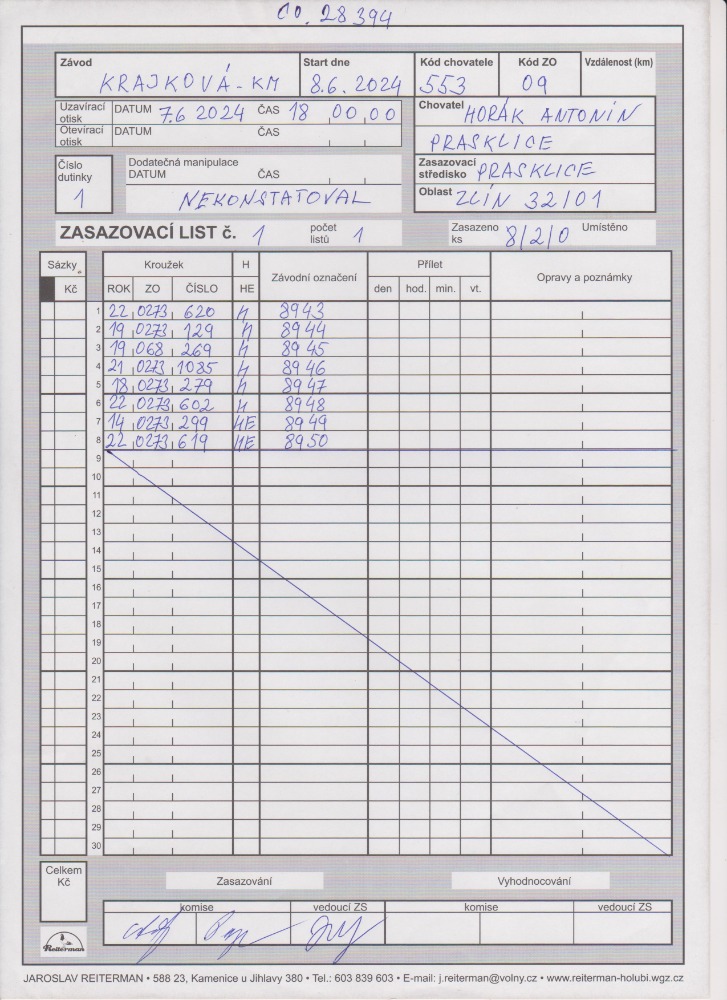 CO. 28 394
Závod Start dne Kód chovatele Kód ZO Vzdálenost (km)
KRAJKOVÁ - KM 8.6. 2024 553 09
Uzavírací otisk DATUM 7.6 2024 ČAS 18 00 00
Otevírací otisk DATUM ČAS
Chovatel HORÁK ANTONÍN
PRASKLICE
Číslo dutinky 1
Dodatečná manipulace
DATUM ČAS
NEKONSTATOVAL
Zasazovací středisko PRASKLICE
Oblast ZLÍN 32/01
ZASAZOVACÍ LIST č. 1 počet listů 1 Zasazeno ks 8/2/0 Umístěno
Sázky Kroužek H Závodní označení Přílet Opravy a poznámky
Kč ROK ZO ČÍSLO HE den hod. min. vt.
1 22 0273 620 H 8943
2 19 0273 129 H 8944
3 19 068 269 H 8945
4 21 0273 1085 H 8946
5 18 0273 279 H 8947
6 22 0273 602 H 8948
7 14 0273 299 HE 8949
8 22 0273 619 HE 8950
9
10
11
12
13
14
15
16
17
18
19
20
21
22
23
24
25
26
27
28
29
30
Celkem Kč
Zasazování Vyhodnocování
komise vedoucí ZS komise vedoucí ZS
Reiterman
JAROSLAV REITERMAN • 588 23, Kamenice u Jihlavy 380 • Tel.: 603 839 603 • E-mail: j.reiterman@volny.cz • www.reiterman-holubi.wgz.cz